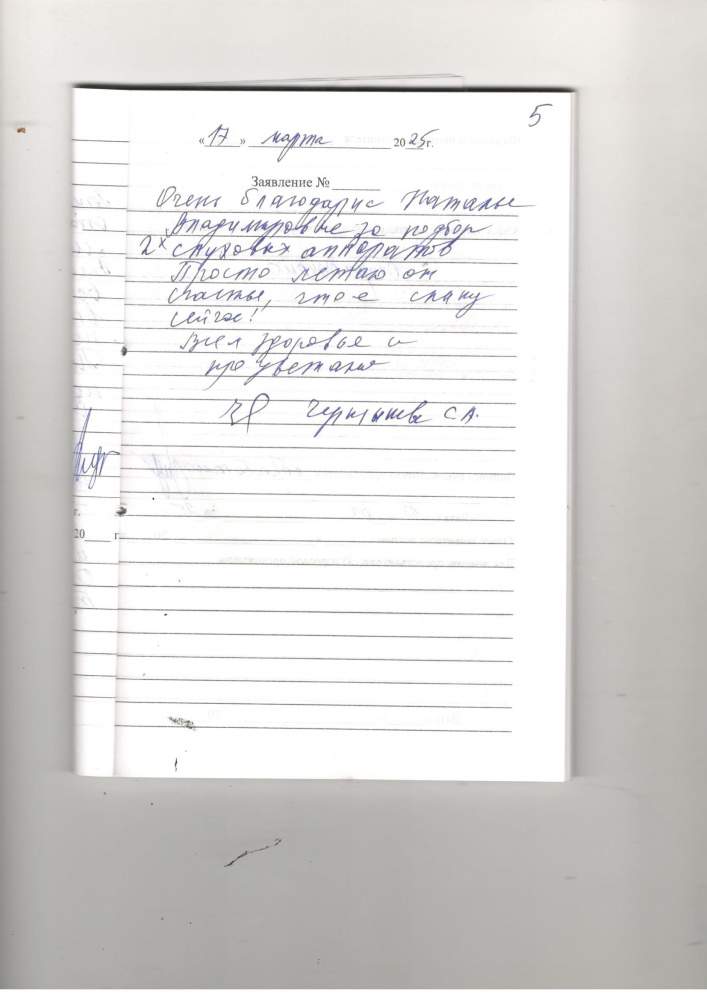 5
«17» марта 2025г.
Заявление №
Очень благодарю Наталье
Владимировне за подбор
2х слуховых аппаратов
Просто летаю он
счастья, что слышу
сейчас!
Всех здоровье и
процветание
С.А.
г.
20 г